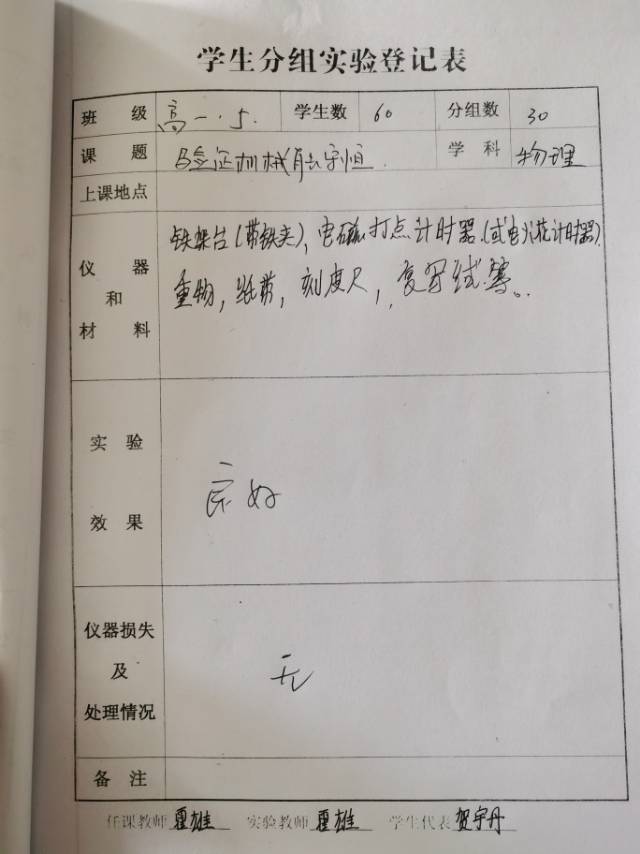 学生分组实验登记表
班 级 高一.5. 学生数 60 分组数 30
课 题 验证机械能守恒. 学 科 物理
上课地点
仪 器 和 材 料 铁架台(带铁夹),电磁打点计时器(或电火花计时器).
重物,纸带,刻度尺,复写纸等。
实 验 效 果 良好
仪器损失
及 无
处理情况
备 注
任课教师 瞿雄 实验教师 瞿雄 学生代表 贺宇丹